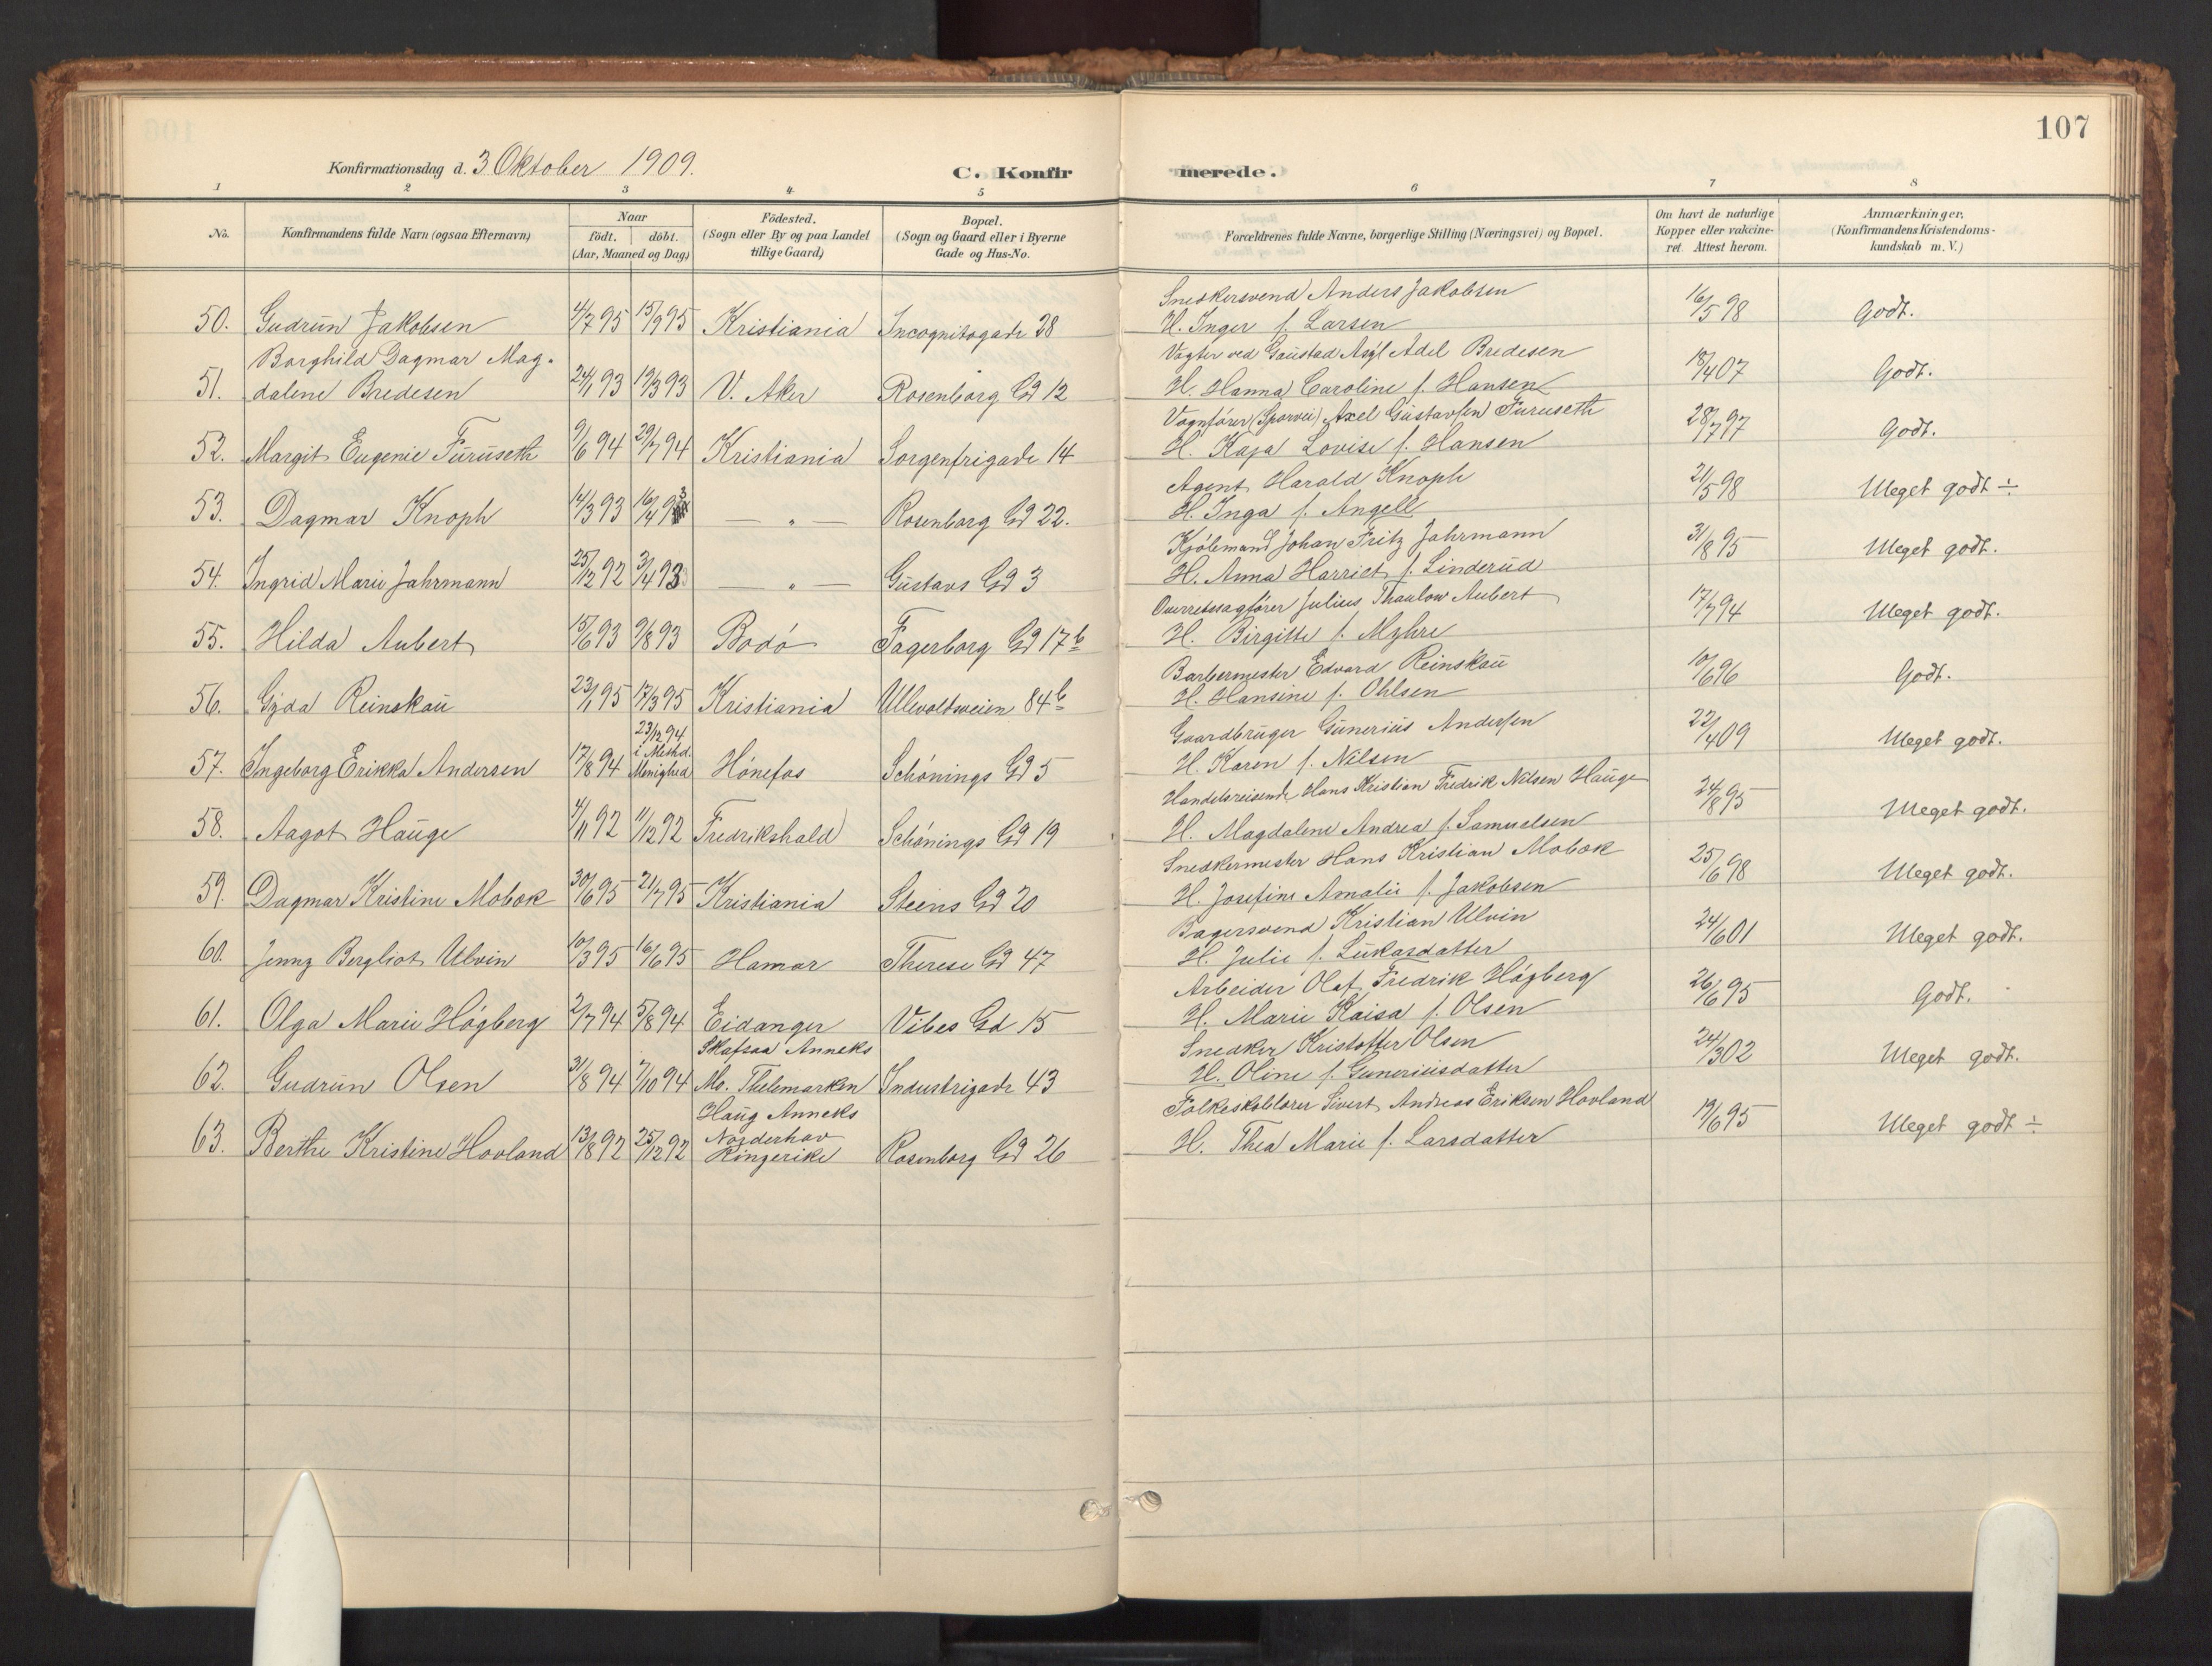 107
Konfirmationsdag d. 3 Oktober 1909.
C. Konfirmerede.
1 2 3 4 5 6 7 8
No.
Konfirmandens fulde Navn (ogsaa Efternavn)
Naar
födt. döbt.
(Aar, Maaned og Dag)
Födested.
(Sogn eller By og paa Landet
tillige Gaard)
Bopæl.
(Sogn og Gaard eller i Byerne
Gade og Hus-No.
Forældrenes fulde Navne, borgerlige Stilling (Næringsvei) og Bopæl.
Om havt de naturlige
Kopper eller vakcine-
ret. Attest herom.
Anmærkninger.
(Konfirmandens Kristendoms-
kundskab m. V.)
50. Gudrun Jakobsen 4/7 95 15/9 95 Kristiania Incognitogade 28
Snedkersvend Anders Jakobsen
H. Inger f. Larsen 16/5 98 Godt.
Borghild Dagmar Mag-
51. dalene Bredesen 24/1 93 19/3 93 V. Aker Rosenborg Gd 12
Vagter ved Gaustad Asyl Adel Bredesen
H. Hanna Caroline f. Hansen 18/4 07 Godt.
52. Margit Eugenie Furuseth 9/6 94 29/7 94 Kristiania Sorgenfrigade 14
Vognfører (Sporvei) Axel Gustavsen Furuseth
H. Kaja Lovise f. Hansen 28/7 97 Godt.
53. Dagmar Knoph 14/3 93 16/4 93 — " — Rosenborg Gd 22.
Agent Harald Knoph
H. Inga f. Angell 21/5 98 Meget godt ÷
54. Ingrid Marie Jahrmann 25/12 92 3/4 93 — " — Gustavs Gd 3
Kjøbmand Johan Fritz Jahrmann
H. Anna Harriet f. Linderud 31/8 95 Meget godt.
55. Hilda Aubert 15/6 93 9/8 93 Bodö Fagerborg Gd 17 b
Overretssagfører Julius Thaulow Aubert
H. Birgitte f. Myhre 17/7 94 Meget godt.
56. Gyda Reinskau 23/1 95 17/3 95 Kristiania Ullevoldsveien 84 b
Barbermester Edvard Reinskau
H. Hansine f. Ohlsen 10/6 96 Godt.
23/12 94
i Methd.
57. Ingeborg Erikka Andersen 17/8 94 Menighed Hönefos Schönings Gd 5
Gaardbruger Gunerius Andersen
H. Karen f. Nilsen 22/4 09 Meget godt.
58. Aagot Hauge 4/11 92 11/12 92 Fredrikshald Schönings Gd 19
Handelsreisende Hans Kristian Fredrik Nilsen Hauge
H. Magdalene Andrea f. Samuelsen 24/8 95 Meget godt.
59. Dagmar Kristine Mobæk 30/6 95 21/7 95 Kristiania Steens Gd 20
Snedkermester Hans Kristian Mobæk
H. Josefine Amalie f. Jakobsen 25/6 98 Meget godt.
60. Jenny Bergliot Ulvin 10/3 95 16/6 95 Hamar Therese Gd 47
Bagersvend Kristian Ulvin
H. Julie f. Lukasdatter 24/6 01 Meget godt.
61. Olga Marie Högberg 2/7 94 5/8 94 Eidanger Vibes Gd 15
Arbeider Olaf Fredrik Högberg
H. Marie Kaisa f. Olsen 26/6 95 Godt.
Skafsaa Anneks
62. Gudrun Olsen 31/8 94 7/10 94 Mo. Thelemarken Industrigade 43
Snedker Kristoffer Olsen
H. Oline f. Guneriusdatter 24/3 02 Meget godt.
Haug Anneks
Norderhov
63. Berthe Kristine Hovland 13/8 92 25/12 92 Ringerike Rosenborg Gd 26
Folkeskolelærer Sivert Andreas Eriksen Hovland
H. Thea Marie f. Larsdatter 19/6 95 Meget godt ÷